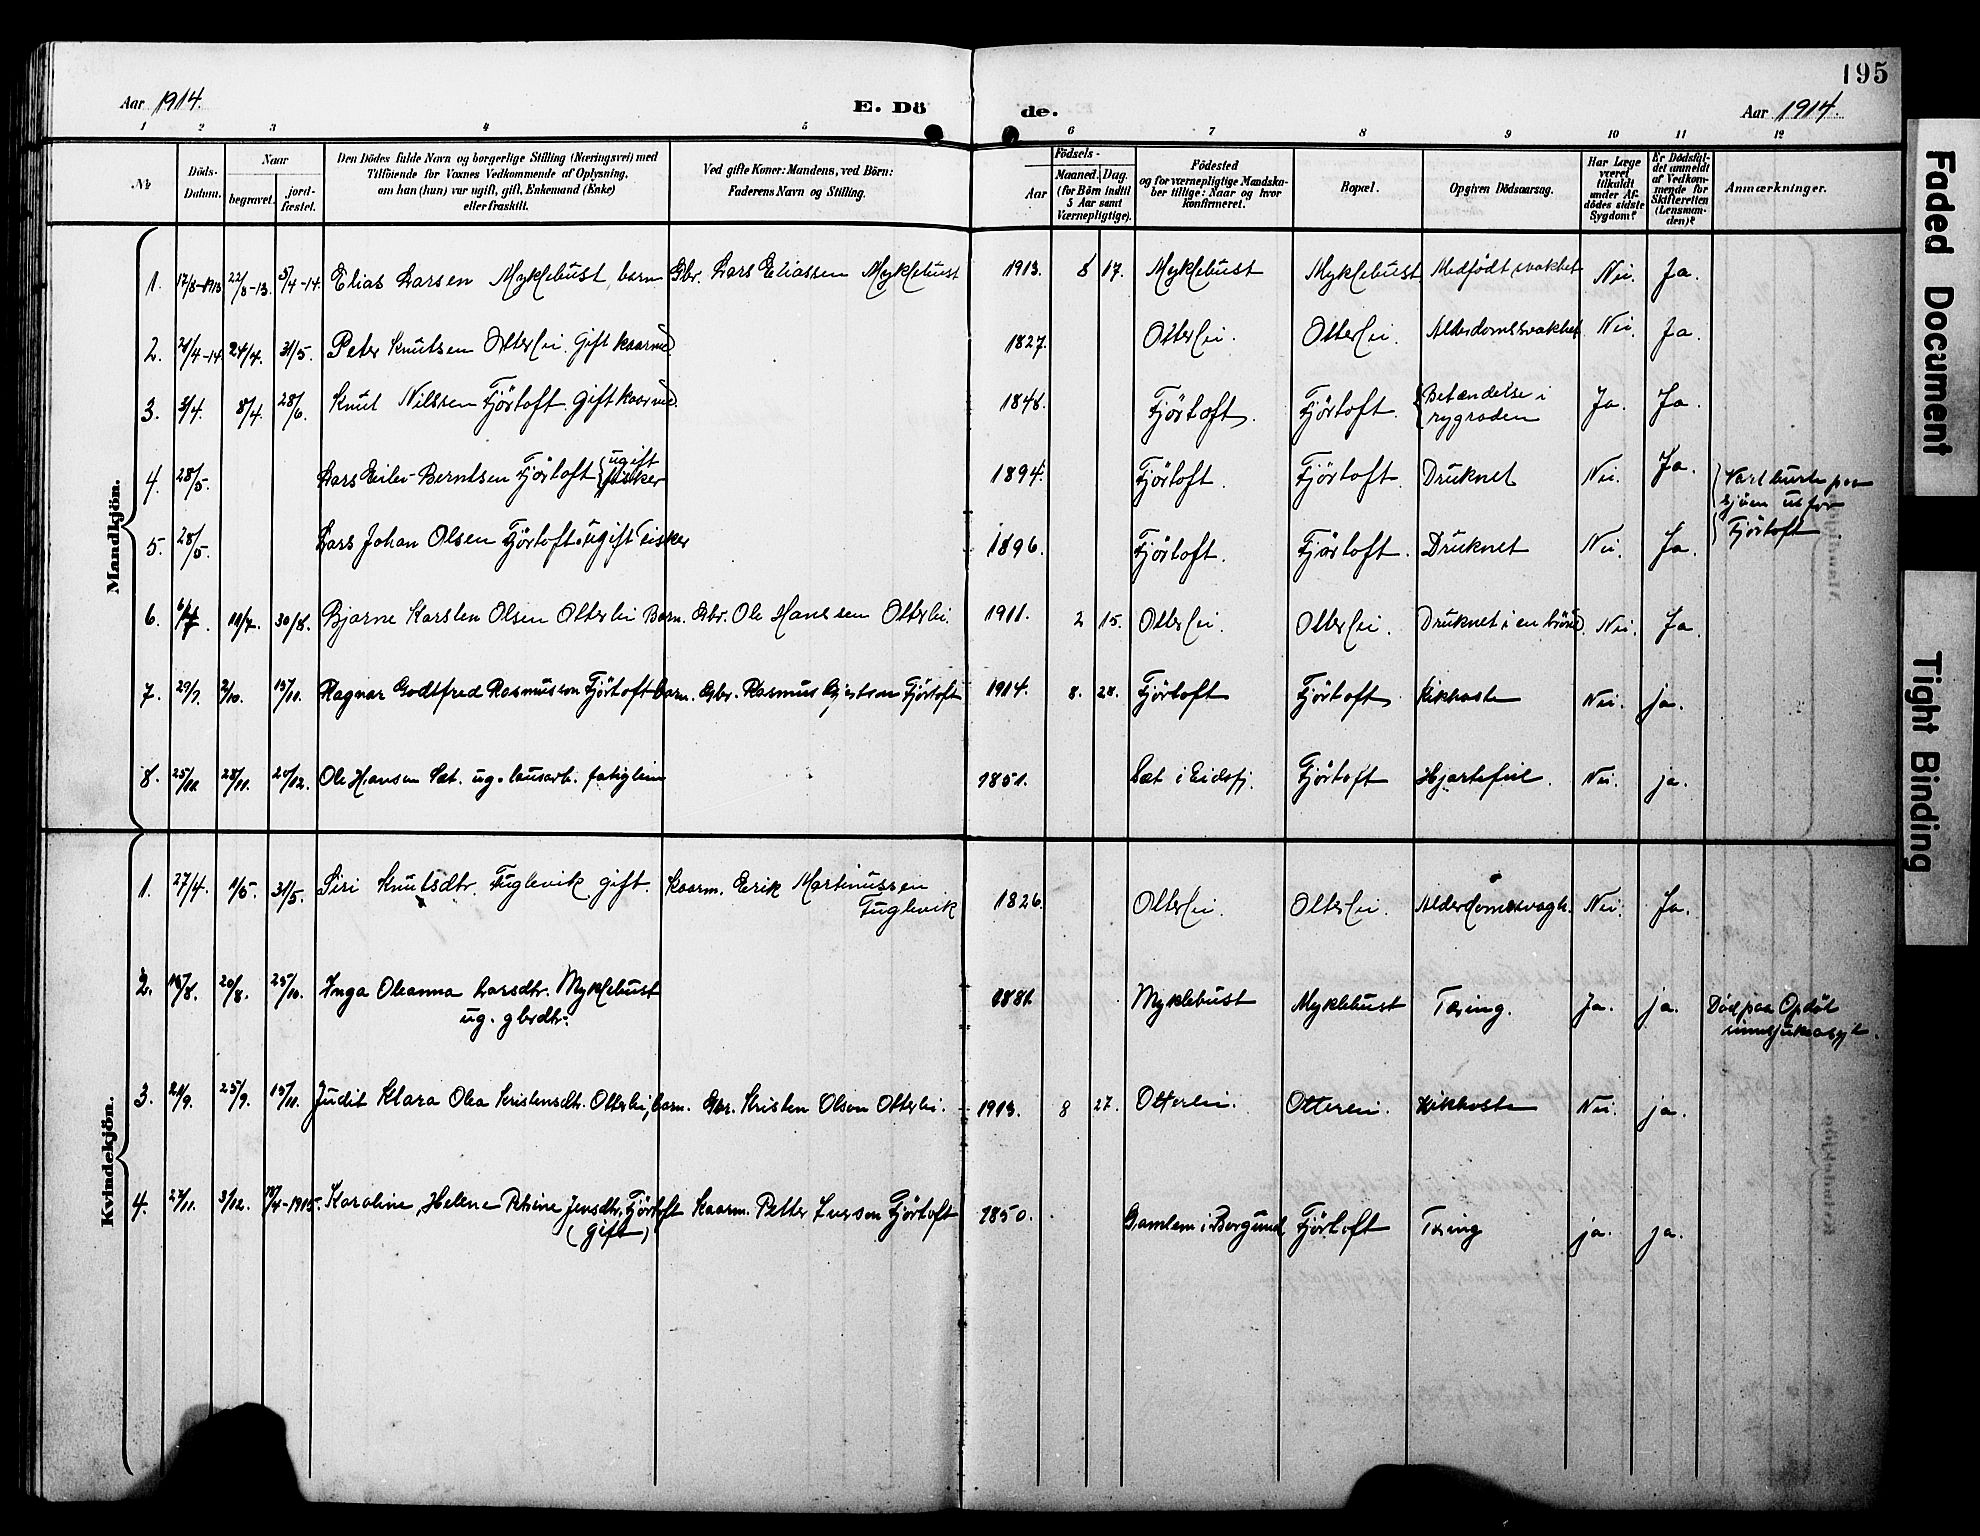 195
Aar 1914.
E. Dö
de.
Aar 1914.
1 2 3 4 5 6 7 8 9 10 11 12
No
Döds-Datum.
Naar
begravet.
jord-fæstet.
Den Dödes fulde Navn og borgerlige Stilling (Næringsvei) med
Tilföiende for Voxnes Vedkommende af Oplysning,
om han (hun) var ugift, gift, Enkemand (Enke)
eller fraskilt.
Ved gifte Koner: Mandens, ved Börn:
Faderens Navn og Stilling.
Födsels-
Aar
Maaned. Dag.
(for Börn indtil
5 Aar samt
Værnepligtige).
Födested
og for værnepligtige Mandska-
ber tillige: Naar og hvor
konfirmeret.
Bopæl.
Opgiven Dödsaarsag.
Har Læge
været
tilkaldt
under Af-
dödes sidste
Sygdom?
Er Dödsfal-
det anmeldt
af Vedkom-
mende for
Skifteretten
(Lensman-
den)?
Anmærkninger.
Mandkjön.
1. 17/8-1913 22/8-13. 5/4-14. Elias Larsen Myklebust, barn Gbr. Lars Eliassen Myklebust 1913. 8 17. Myklebust Myklebust. Medfödt svakhet Nei. Ja.
2. 21/4-14 24/4. 31/5. Peter Knutsen Otterlei. Gift kaarmd 1827. Otterlei. Otterlei. Alderdomssvakhet Nei. Ja.
3. 3/4. 8/4. 28/6. Knut Nilssen Fjörtoft. Gift kaarmd. 1848. Fjörtoft. Fjörtoft. Betændelse i
rygraden Ja. Ja.
4. 28/5. Lars Eilev Berntsen Fjörtoft ugift
fisker 1894. Fjörtoft. Fjörtoft. Druknet Nei. Ja. Vart burte paa
sjöen utfor
Fjörtoft
5. 28/5. Lars Johan Olsen Fjörtoft. Ugift Fisker 1896. Fjörtoft. Fjörtoft. Druknet Nei. Ja.
6. 6/7. 11/7. 30/8. Bjarne Karsten Olsen Otterlei Barn. Gbr. Ole Hanssen Otterlei. 1911. 2 15. Otterlei. Otterlei. Druknet i en brönd. Nei. Ja.
7. 29/9. 2/10. 15/11. Ragnar Godtfred Rasmusson Fjörtoft barn. Gbr. Rasmus Fjörtoft 1914. 8. 28. Fjörtoft Fjörtoft Kikhoste Nei. ja.
8. 25/11. 28/11. 20/12. Ole Hanson Sæt. ug. lausarb. fatiglem 1851. Sæt i Eidsfj. Fjörtoft Hjartefeil. Nei. ja.
Kvindekjön.
1. 27/4. 1/5. 31/5. Siri Knutsdtr. Fuglevik gift. Kaarm. Erik Martinussen
Fuglevik 1826. Otterlei. Otterlei. Alderdomssvagh. Nei. Ja.
2. 15/8. 20/8. 25/10. Inga Oleanna Larsdtr. Myklebust
ug. gbrdtr. 1881. Myklebust Myklebust Tæring. Ja. ja. Död paa Opdöl
sinnsjukeasyl.
3. 21/9. 25/9. 15/11. Judit Klara Olea Kristensdtr. Otterlei, barn. Gbr. Kristen Olson Otterlei. 1913. 8 27. Otterlei. Otterlei. Kikhoste Nei. ja.
4. 27/11. 3/12. 18/4-1915. Karoline Helene Petrine Jensdtr. Fjörtoft
(gift) Kaarm. Petter Iverson Fjörtoft 1850. Gamlem i Borgund Fjörtoft Tæring ja. ja.
Faded Document
Tight Binding